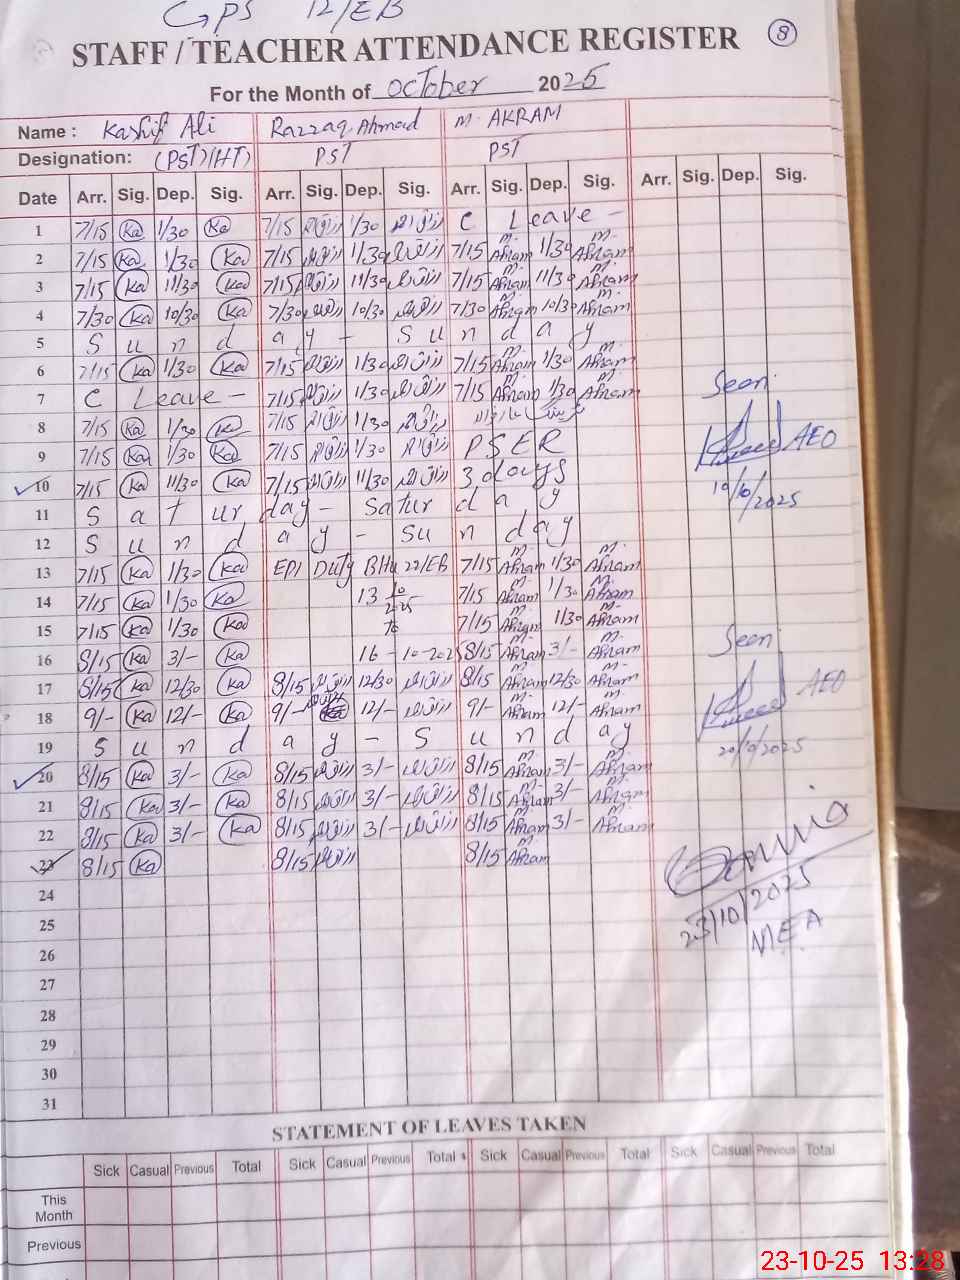 GPS 12/EB
STAFF / TEACHER ATTENDANCE REGISTER 8
For the Month of October 2025
Name : Kashif Ali Razzaq Ahmad M. AKRAM
Designation: (PST)(HT) PST PST
Date Arr. Sig. Dep. Sig. Arr. Sig. Dep. Sig. Arr. Sig. Dep. Sig. Arr. Sig. Dep. Sig.
1 7/15 Ka 1/30 Ka 7/15 1/30 C Leave -
2 7/15 Ka 1/30 Ka 7/15 1/30 7/15 M. Akram 1/30 M. Akram
3 7/15 Ka 11/30 Ka 7/15 11/30 7/15 M. Akram 11/30 M. Akram
4 7/30 Ka 10/30 Ka 7/30 10/30 7/30 M. Akram 10/30 M. Akram
5 S u n d a y - S u n d a y
6 7/15 Ka 1/30 Ka 7/15 1/30 7/15 M. Akram 1/30 M. Akram
7 C Leave - 7/15 1/30 7/15 M. Akram 1/30 M. Akram
Seen
8 7/15 Ka 1/30 Ka 7/15 1/30
AEO
9 7/15 Ka 1/30 Ka 7/15 1/30 PSER
10 7/15 Ka 11/30 Ka 7/15 11/30 3 days
10/10/2025
11 S a t ur day - Satur d a y
12 S u n d a y - Su n day
13 7/15 Ka 1/30 Ka EPI Duty BHU 22/EB 7/15 M. Akram 1/30 M. Akram
14 7/15 Ka 1/30 Ka 13 10 2025 7/15 M. Akram 1/30 M. Akram
15 7/15 Ka 1/30 Ka To 7/15 M. Akram 1/30 M. Akram
Seen
16 8/15 Ka 3/- Ka 16-10-2025 8/15 M. Akram 3/- M. Akram
17 8/15 Ka 12/30 Ka 8/15 12/30 8/15 M. Akram 12/30 M. Akram
AEO
18 9/- Ka 12/- Ka 9/- 12/- 9/- M. Akram 12/- M. Akram
19 S u n d a y - S u n d a y
20/10/2025
20 8/15 Ka 3/- Ka 8/15 3/- 8/15 M. Akram 3/- M. Akram
21 8/15 Ka 3/- Ka 8/15 3/- 8/15 M. Akram 3/- M. Akram
22 8/15 Ka 3/- Ka 8/15 3/- 8/15 M. Akram 3/- M. Akram
23 8/15 Ka 8/15 8/15 M. Akram
24
23/10/2025
25
MEA
26
27
28
29
30
31
STATEMENT OF LEAVES TAKEN
Sick Casual Previous Total Sick Casual Previous Total Sick Casual Previous Total Sick Casual Previous Total
This
Month
Previous
23-10-25 13:28